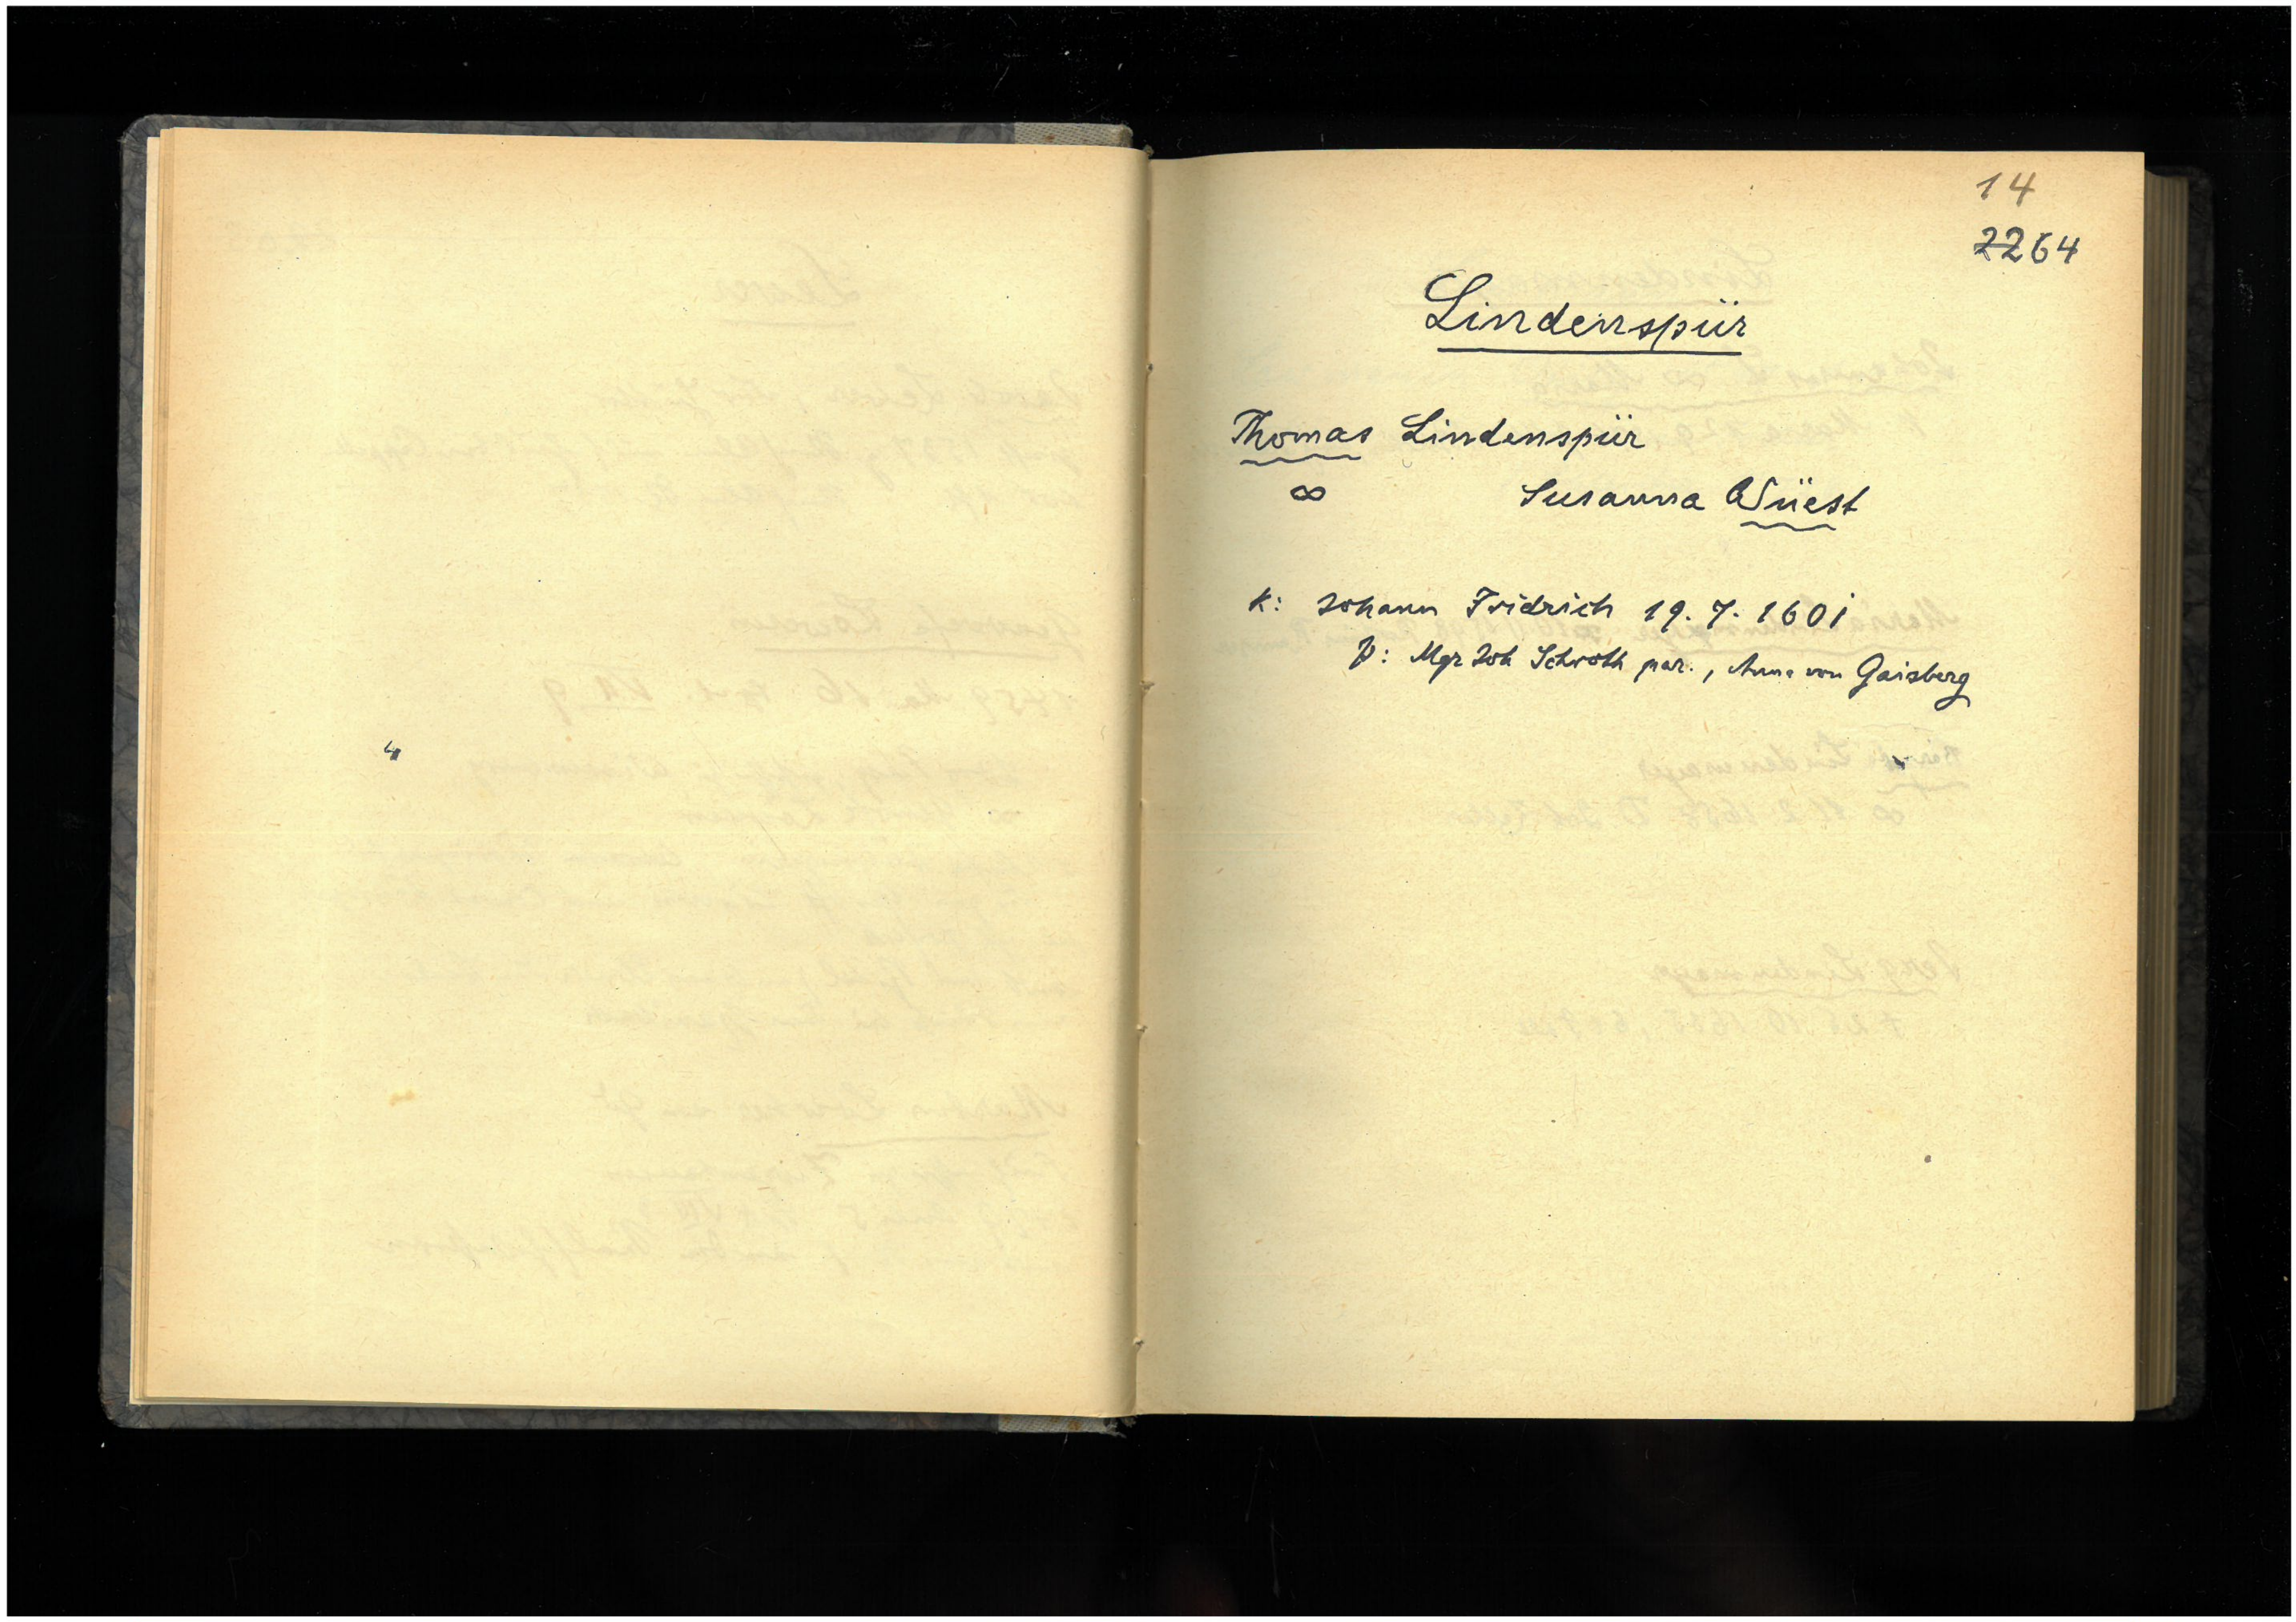 14
2264
Lindenspür
Thomas Lindenspür
∞ Susanna Wüest
K: Johann Fridrich 19. 7. 1601
P: Mgr Joh Schroth par., Anna von Gaisberg